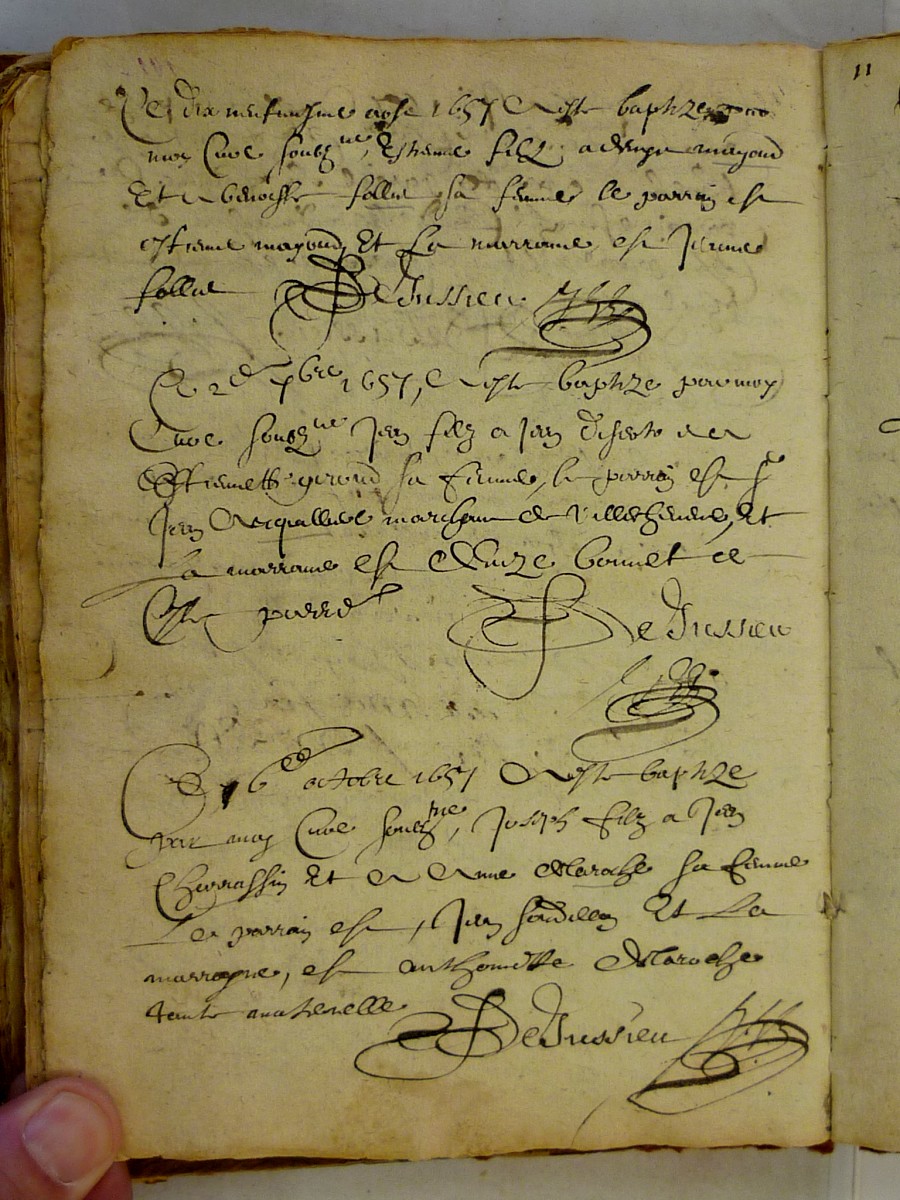 Ce dix neufviesme aost 1657 a esté baptizé par
moy Curé soubzne, Estienne filz a
Et a benoiste follie sa femme le parrain est
estienne mayoud, Et La marraine est Jeanne
follie DeJussieu
Ce 2e 7bre 1657, a esté baptizé par moy
Curé soubzne Jean filz a Jean
Estiennette giroud sa femme, le parrain est sr
Jean marchant de Villechenève, Et
La marraine est bonnet de
Ceste parr
DeJussieu
Ce 6e octobre 1657 a esté baptizé
par moy Curé soubzne, Joseph filz a Jean
Charrassin Et a Anne Delaroche sa femme
Le parrain est, Jean Et La
marrayne, est anthoinette Delaroche
tante maternelle DeJussieu
11